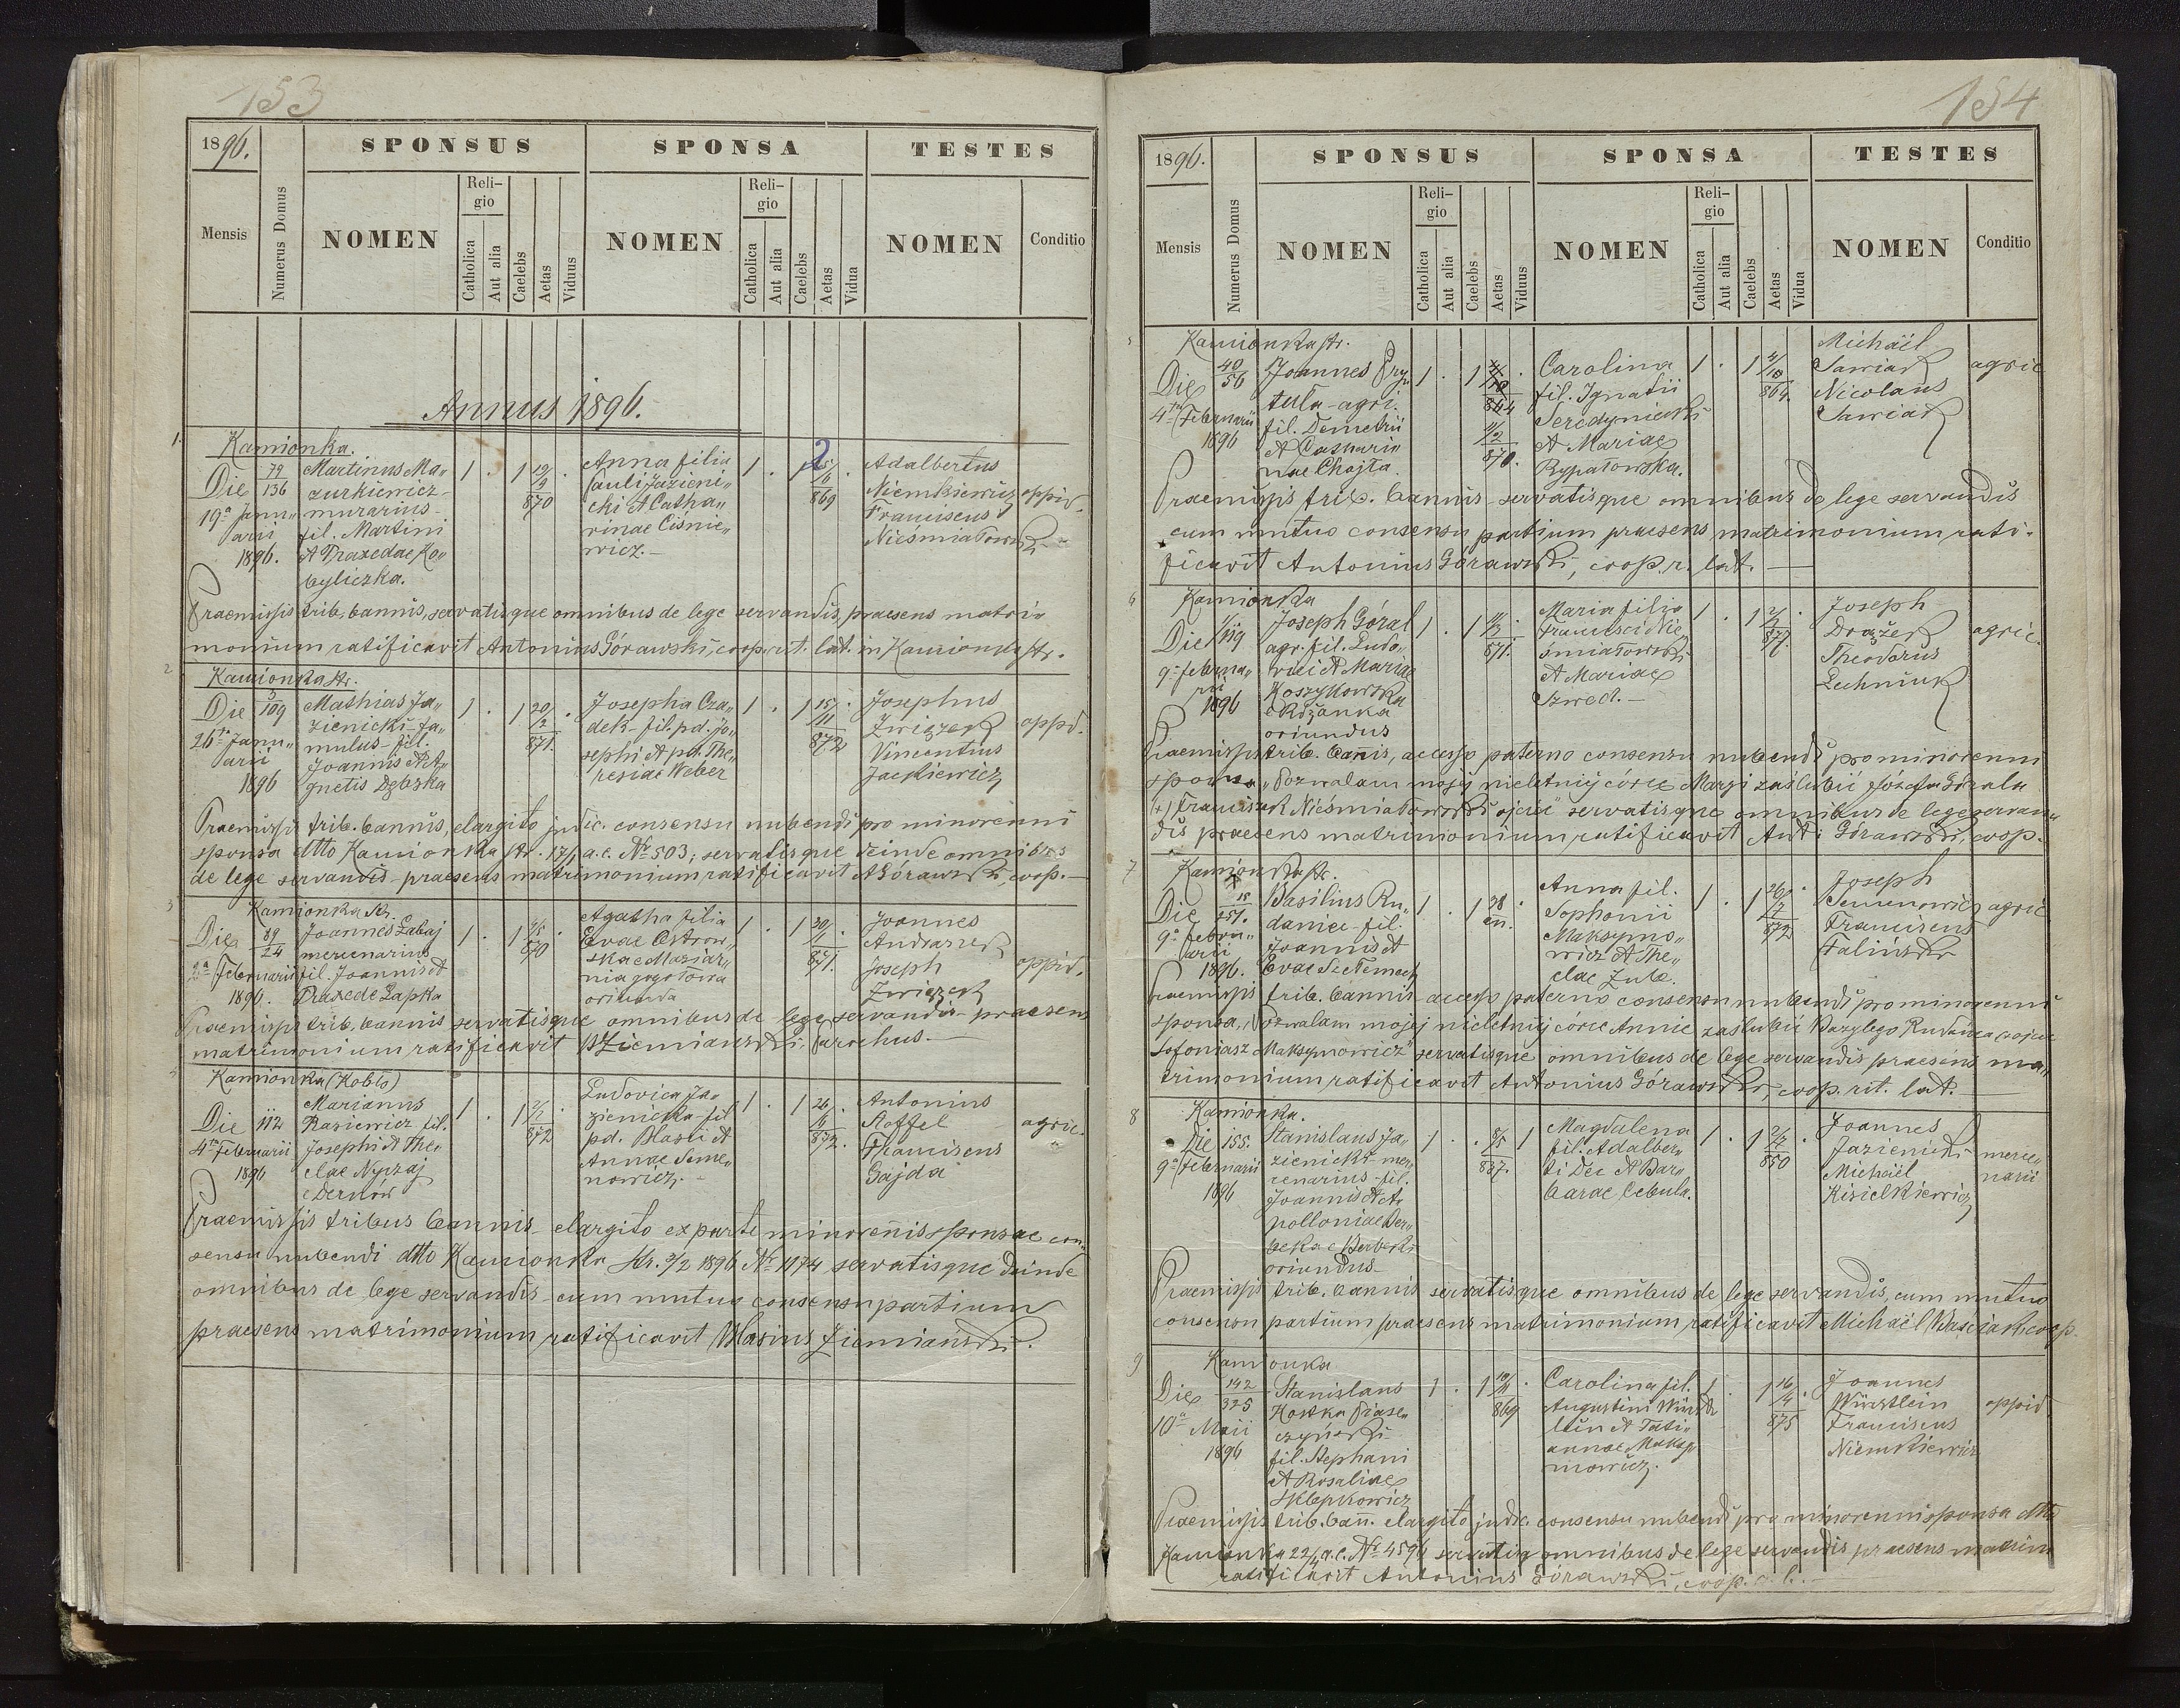 153
1896.
SPONSUS
SPONSA
TESTES
Mensis
Numerus Domus
NOMEN
Religio
Catholica
Aut alia
Caelebs
Aetas
Viduus
NOMEN
Religio
Catholica
Aut alia
Caelebs
Aetas
Vidua
NOMEN
Conditio
Annus 1896.
1.
Kamionka.
Die 19ª Januarii 1896.
79/136
Martinus Ma„
zurkiewicz-
murarius-
fil. Martini
et Praxedae Ko„
byliczka.
1 . 1 19/9 870 .
Anna filia
Pauli Jazieni„
cki et Catha„
rinae Ciśnie„
wicz.-
1 . 1 15/6 869 .
2
Adalbertus
Niemkiewicz
Franciscus
Nieśmiałowski
oppid.
Praemissis trib. bannis, servatisque omnibus de lege servandis, praesens matri„
monium ratificavit Antonius Górawski, coop. rit. lat. in Kamionka str.
2
Kamionka str.
Die 26ta Januarii 1896
5/109
Mathias Ja„
zienicki-fa„
mulus-fil.
Joannis et A„
gnetis Dębska
1 . 1 20/2 871. .
Josepha Cza„
dek. fil. pd. Jo„
sephi et pd. The„
resiae Weber
1 . 1 15/11 872 .
Josephus
Związek
Vincentius
Jackiewicz
oppd.
Praemissis trib. bannis, elargito judic. consensu nubendi pro minorenni
sponsa dtto Kamionka str. 17/1 a.c. № 503; servatisque deinde omnibus
de lege servandis-praesens matrimonium ratificavit A Górawski, coop.-
3
Kamionka str.
Die 2ª Februarii 1896.
89/24
Joannes Łabaj
mercenarius
fil. Joannis et
Praxede Łapka
1 . 1 870 .
Agatha filia
Evae Ostrow„
ska e Maziar„
nia
oriunda
1 . 1 30/1 871. .
Joannes
Andraszek
Joseph
Związek
oppid.
Praemissis trib. bannis servatisque omnibus de lege servandis-praesens
matrimonium ratificavit B Ziemiański, Parochus.-
Kamionka (Kobło)
Die 4ta Februarii 1896
112
Marianus
Raziewicz fil.
Josephi et The„
clae Nyczaj
e Dernów
1 . 1 2/2 872 .
Ludovica Ja„
zienicka-fil
pd. Blasii et
Annae Seme„
nowicz.-
1 . 1 26/6 872. .
Antonius
Roffel
Franciscus
Gajda
agric.
Praemissis tribus bannis-elargito ex parte minorennis sponsae con„
sensu nubendi dtto Kamionka str. 3/2 1896 № 1174 servatisque deinde
omnibus de lege servandis-cum mutuo consensu partium
praesens matrimonium ratificavit Blasius Ziemiański.
154
1896.
SPONSUS
SPONSA
TESTES
Mensis
Numerus Domus
NOMEN
Religio
Catholica
Aut alia
Caelebs
Aetas
Viduus
NOMEN
Religio
Catholica
Aut alia
Caelebs
Aetas
Vidua
NOMEN
Conditio
5
Kamionka str.
Die 4ta Februarii 1896
40/56
Joannes Pry„
tula-agri.
fil. Demetrii
et Catharin
nae Chajta.
1 . 1 11/2 870. .
Carolina
fil. Ignatii
Seredyniecki
et Mariae
Rypałowska.
1 . 1 4/10 864. .
Michäel
Sawiak
Nicolaus
Sawiak
agric
Praemissis trib. bannis-servatisque omnibus de lege servandis
cum mutuo consensu partium praesens matrimonium rati-
ficavit Antonius Górawski, coop. r. lat.
6
Kamionka
Die 9ª februarii 1896
1/119
Joseph Góral
agr. fil. Ludo„
vici et Mariae
Koszykowska
e Różanka
oriundus
1 . 1 11/3 871. .
Maria filia
Francisci Nie
śmiałowski
et Mariae
Szwed.-
1 . 1 2/2 877. .
Joseph
Drążek
Theodorus
Luchniuk
agric.
Praemissis trib. bannis, accesso paterno consensu nubendi pro minorenni
sponsa „Pozwalam mojéj nieletniéj córce Maryi zaślubić Józefa Górala
(+) Franciszek Nieśmiałowski ojciec" servatisque omnibus de lege servan„
dis praesens matrimonium ratificavit Ant. Górawski, coop.
7
Kamionka str.
Die 9ª februarii 1896.
15/251.
Basilius Ru„
daniec-fil.
Joannis et
Evae Szełemech
1 . 1 28 an. .
Anna fil.
Sophonii
Maksymo„
wicz et The„
clae Zub.
1 . 1 26/7 872 .
Joseph
Semenowicz
Franciscus
Faliński
agric
Praemissis trib. bannis-accesso paterno consensu nubendi pro minorenni
sponsa, „Pozwalam mojej nieletniéj córce Annie zaślubić Bazylego Rudańca ojciec
Sofoniasz Maksymowicz" servatisque omnibus de lege servandis praesens ma„
trimonium ratificavit Antonius Górawski, coop. rit. lat.
8
Kamionka.
Die 9ª Februarii 1896
155.
Stanislaus Ja„
zienicki-mer„
cenarius-fil.
Joannis et A„
polloniae Der„
beka e Berbeki
oriundus-
1 . . 8/5 837. 1
Magdalena
fil. Adalber„
ti Dec et Bar„
barae Cebula.
1 . 1 2/7 850 .
Joannes
Jazienicki
Michäel
Kisielkiewicz
merce„
narii
Praemissis trib. bannis servatisque omnibus de lege servandis, cum mutuo
consensu partium praesens matrimonium ratificavit Michäel Baściak coop.
9
Kamionka
Die 10ª Maii 1896
142/325
Stanislaus
Kostka Piase„
czyński-
fil. Stephani
et Rosaliae
Sklepkowicz
1 . 1 10/11 869
Carolina fil.
Augustini Würst
lein et Tati„
annae Maksy
mowicz.
1 . 1 16/4 875 .
Joannes
Würstlein
Franciscus
Niemkiewicz
oppid.
Praemissis trib. bann. elargito judic. consensu nubendi pro minorenni sponsa dtto
Kamionka 22/4 a.c. № 4594 servatisq omnibus de lege servandis praesens matrim
ratificavit Antonius Górawski, coop. r. l.-